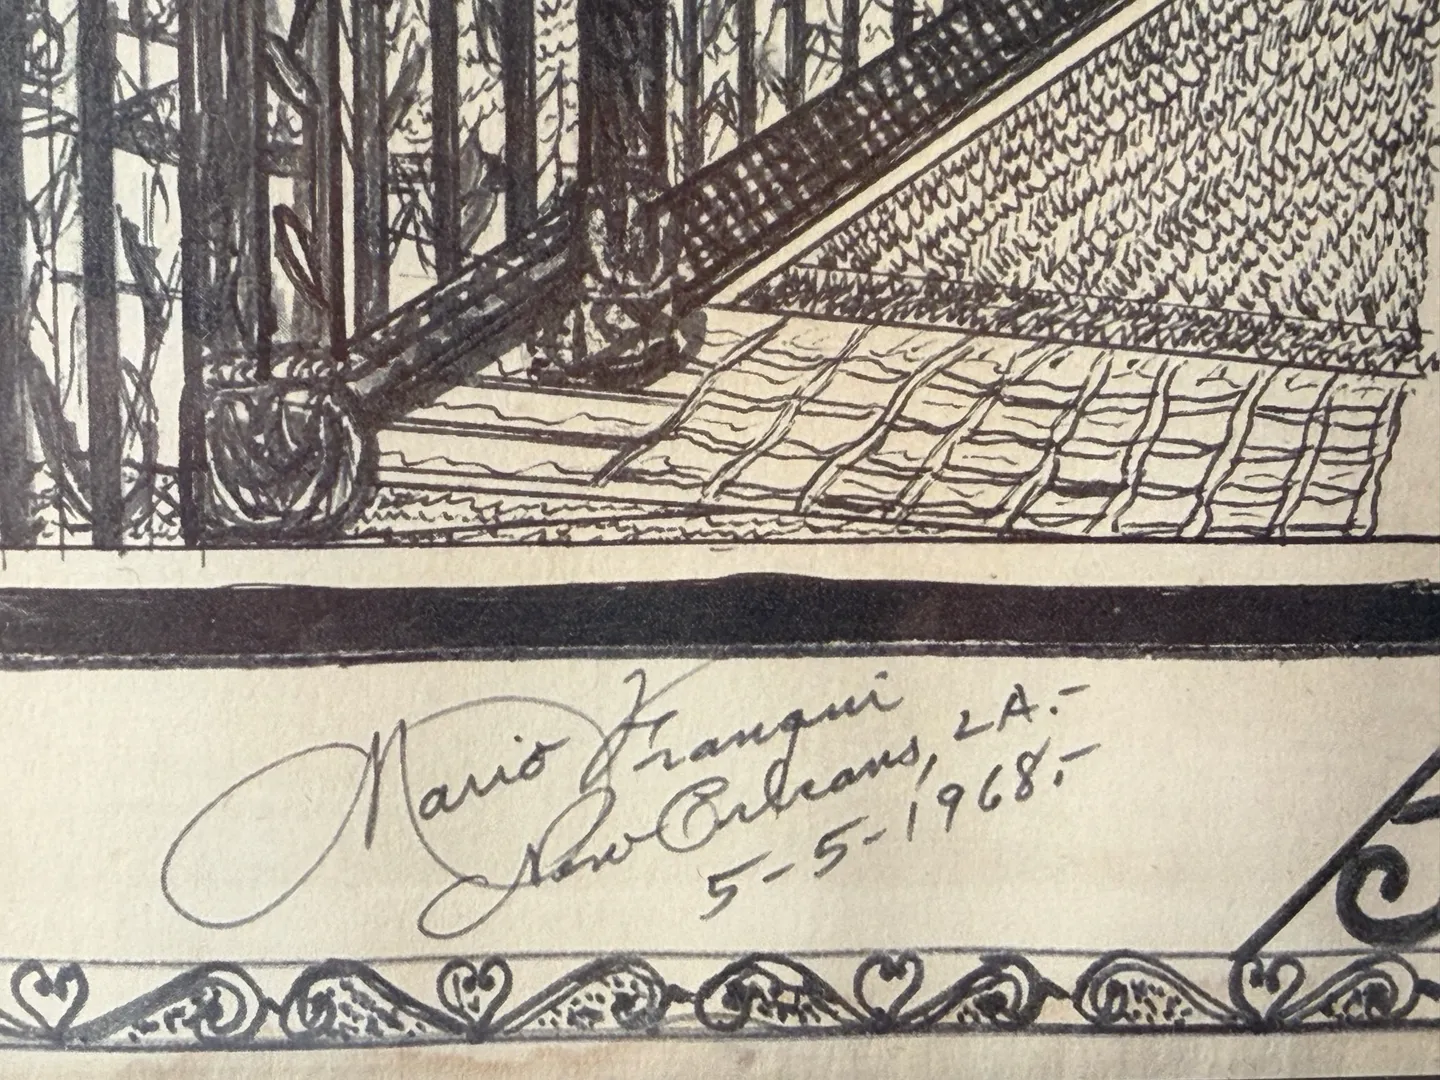 Mario Franqui
New Orleans, LA.-
5-5-1968.-